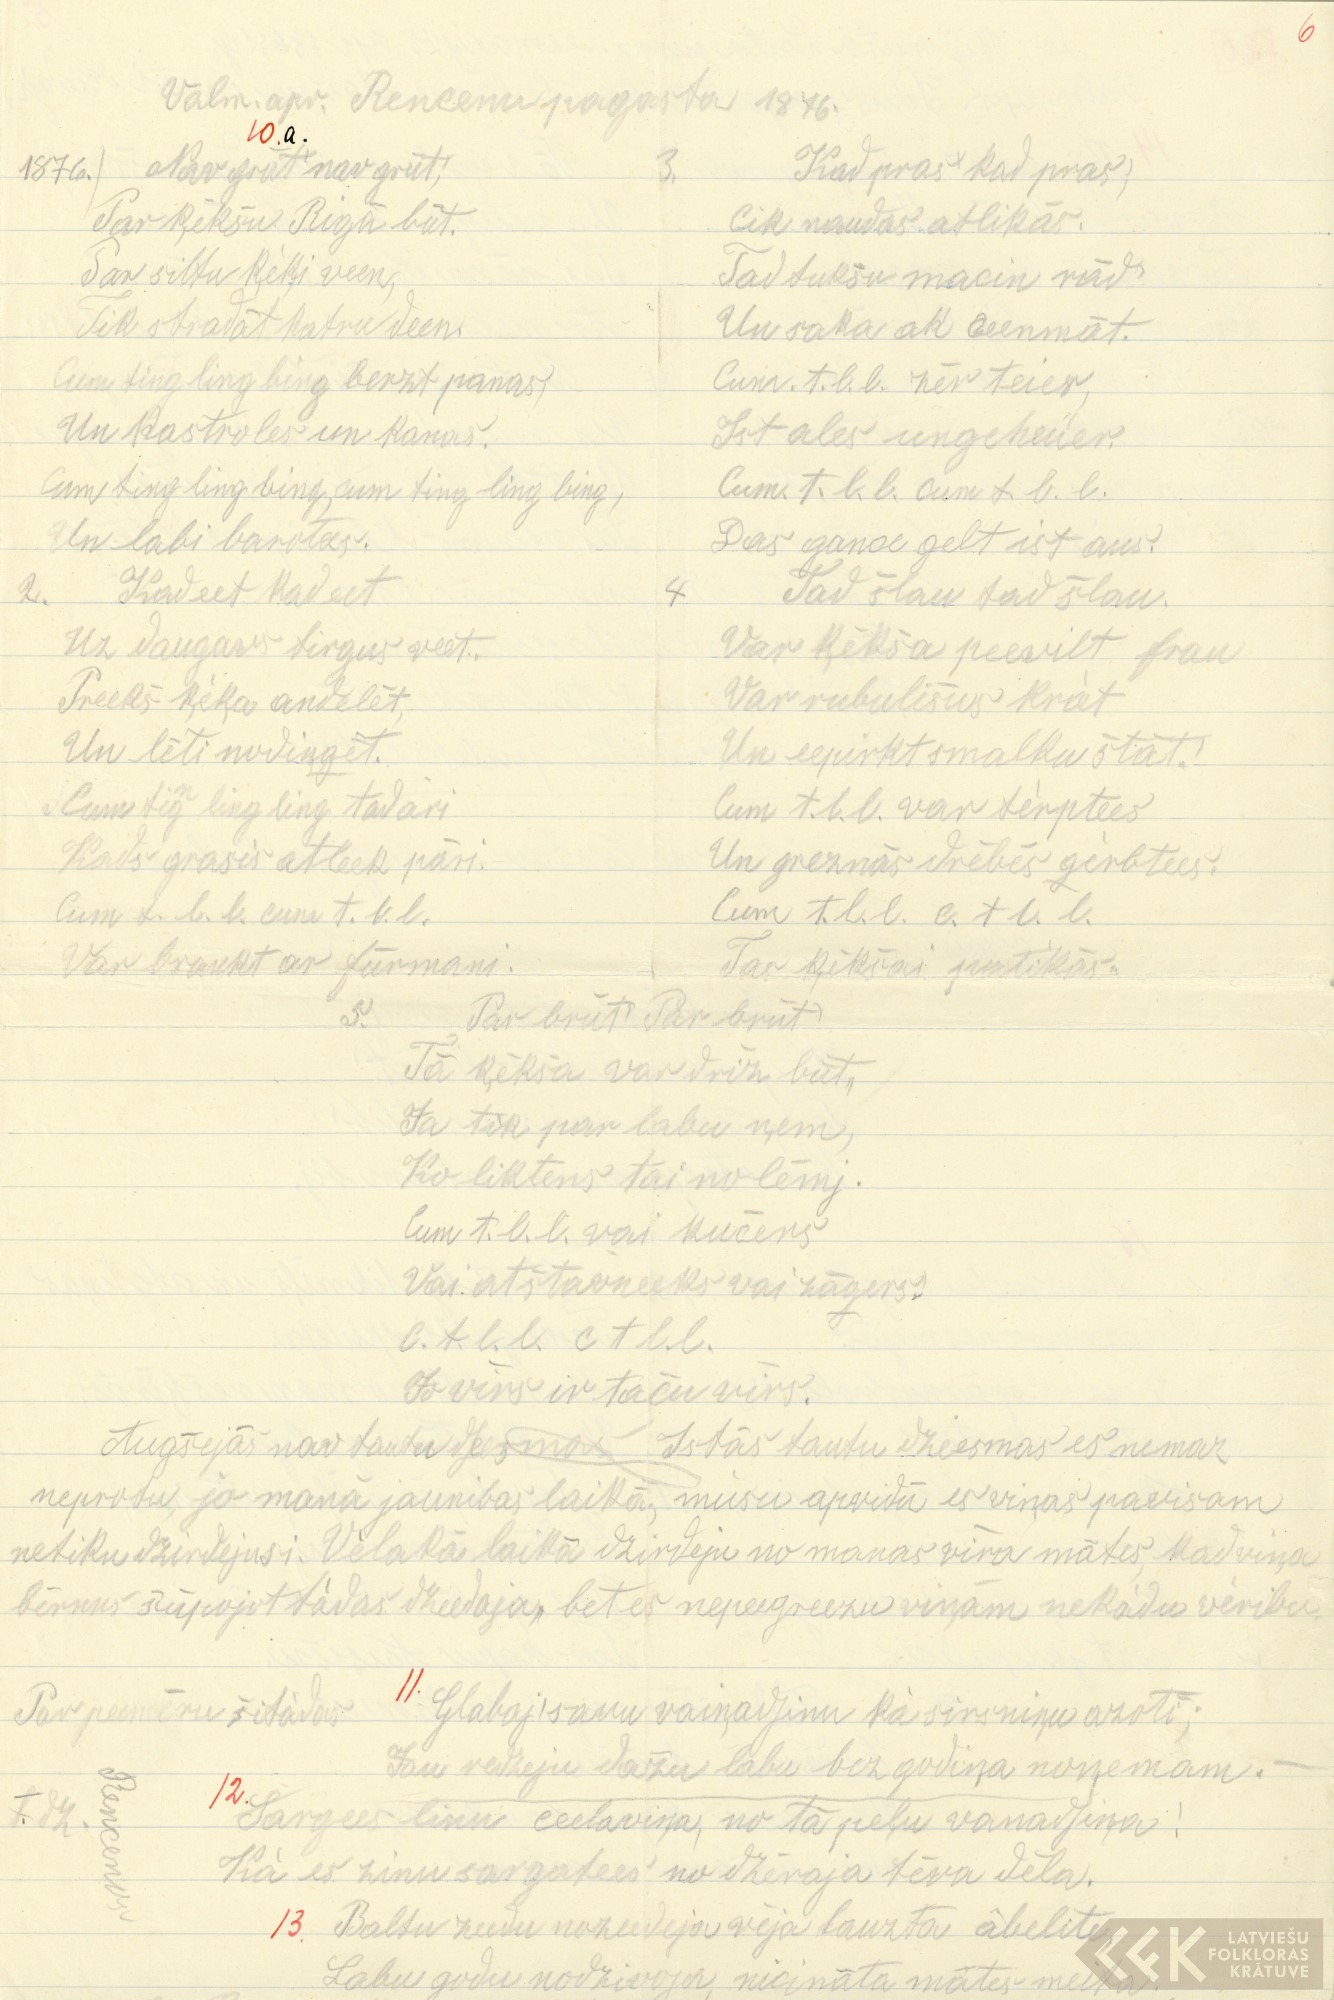 6
Valm. apr. Rencenu pagasta 1876.
10.a.
1876.) Nav grūt' nav grūt',
Par ķēkšu Rigā būt.
Par siltu ķēķi veen,
Tik stradāt katru deen.
Cum ting ling bing berzt panas,
Un kastroles un kanas.
Cum ting ling bing, cum ting ling bing,
Un labi barotees.
2. Kad eet kad eet
Uz daugavs tirgus veet.
Preekš ķēķa andelēt,
Un lēti nodingēt.
Cum ting ling ling tadāri
Kads grasis atleek pāri.
Cum t. l. l. cum t. l. l.
Var braukt ar fūrmani.
3. Kad pras' kad pras',
Cik naudas atlikās.
Tad tukšu macin rād'
Un saka ak ceenmāt.
Cum. t. l. l. zēr teier,
Ist ales ungeheüer.
Cum. t. l. l. cum t. l. l.
Das ganze gelt ist aus.
4 Tad šlau tad šlau.
Var ķēkša peevilt frau
Var rubulīšus krāt
Un eepirkt smalku štāt.!
Cum t. l. l. var tērptees
Un greznās drēbēs gērbtees.
Cum t. l. l. c. t l. l.
Tas ķēkšai patikās.
5. Par brūt' Par brūt'
Tā ķēkša var drīz būt,
Ja tik par labu ņem,
Ko liktens tai no lēmj.
Cum t. l. l. vai kučers
Vai atstavneeks vai zāgers.
C. t. l. l. c t l. l.
Jo vīrs ir taču vīrs.
Augšejās nav tautu dzeesmas Istās tautu dzeesmas es nemaz
neprotu, jo manā jaunibas laikā, mūsu apvidū es viņas pavisam
netiku dzirdejusi. Vēlakā laikā dzirdeju no manas vīra mātes, kad viņa
bērnus šūpojot tādas dzeedaja, bet es nepeegreezu viņām nekādu vēribu,
Par peemēru šitādas 11. Glabaj' savu vaiņadziņu kā sirsniņu azotī;
Jau redzeju dažu labu bez godiņa noņemam. —
t. dz. Rencenos.
12. Sargees linu ceelaviņa, no tā peļu vanadziņa!
Kā es zinu sargatees no dzēraja tēva dēla.
13. Baltu zeedu nozeedeja vēja lauzta ābelite,
Labu godu nodzivoja, nicināta mātes meita.
LATVIEŠU
FOLKLORAS
KRĀTUVE